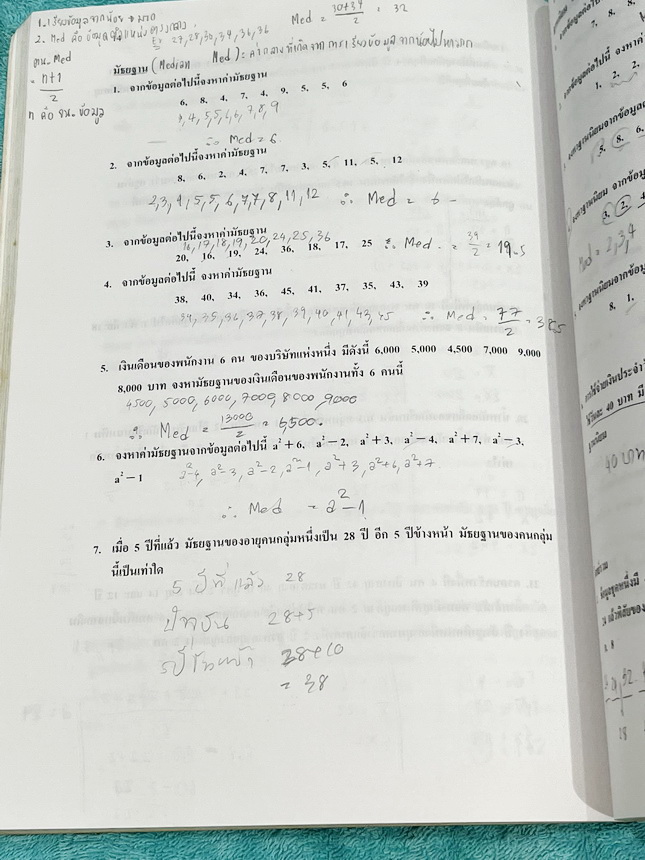 1. เรียงข้อมูลจากน้อย → มาก
2. Med คือ ข้อมูล ตำแหน่งตรงกลาง
27, 28, 30, 34, 36, 36
Med = 30+34/2 = 32
ตน. Med
= n+1/2
n คือ จน. ข้อมูล
มัธยฐาน (Median Med) = ค่ากลางที่เกิดจากการเรียงข้อมูลจากน้อยไปหามาก
1. จากข้อมูลต่อไปนี้จงหาค่ามัธยฐาน
6, 8, 4, 7, 4, 9, 5, 5, 6
4, 4, 5, 5, 6, 6, 7, 8, 9
∴ Med = 6
2. จากข้อมูลต่อไปนี้จงหาค่ามัธยฐาน
8, 6, 2, 4, 7, 7, 3, 5, 11, 5, 12
2, 3, 4, 5, 5, 6, 7, 7, 8, 11, 12 ∴ Med = 6
3. จากข้อมูลต่อไปนี้จงหาค่ามัธยฐาน
16, 17, 18, 19, 20, 24, 25, 36
20, 16, 19, 24, 36, 18, 17, 25 ∴ Med = 39/2 = 19.5
4. จากข้อมูลต่อไปนี้ จงหาค่ามัธยฐาน
38, 40, 34, 36, 45, 41, 37, 35, 43, 39
34, 35, 36, 37, 38, 39, 40, 41, 43, 45 ∴ Med = 77/2 = 38.5
5. เงินเดือนของพนักงาน 6 คน ของบริษัทแห่งหนึ่ง มีดังนี้ 6,000 5,000 4,500 7,000 9,000
8,000 บาท จงหามัธยฐานของเงินเดือนของพนักงานทั้ง 6 คนนี้
4500, 5000, 6000, 7000, 8000, 9000
∴ Med = 13000/2 = 6,500.
6. จงหาค่ามัธยฐานจากข้อมูลต่อไปนี้ a²+6, a²−2, a²+3, a²−4, a²+7, a²−3,
a²−1 a²-4, a²-3, a²-2, a²-1, a²+3, a²+6, a²+7
∴ Med = a²-1
7. เมื่อ 5 ปีที่แล้ว มัธยฐานของอายุคนกลุ่มหนึ่งเป็น 28 ปี อีก 5 ปีข้างหน้า มัธยฐานของคนกลุ่ม
นี้เป็นเท่าใด
5 ปีที่แล้ว 28
ปัจจุบัน 28+5
5ปีข้างหน้า 28+10
= 38